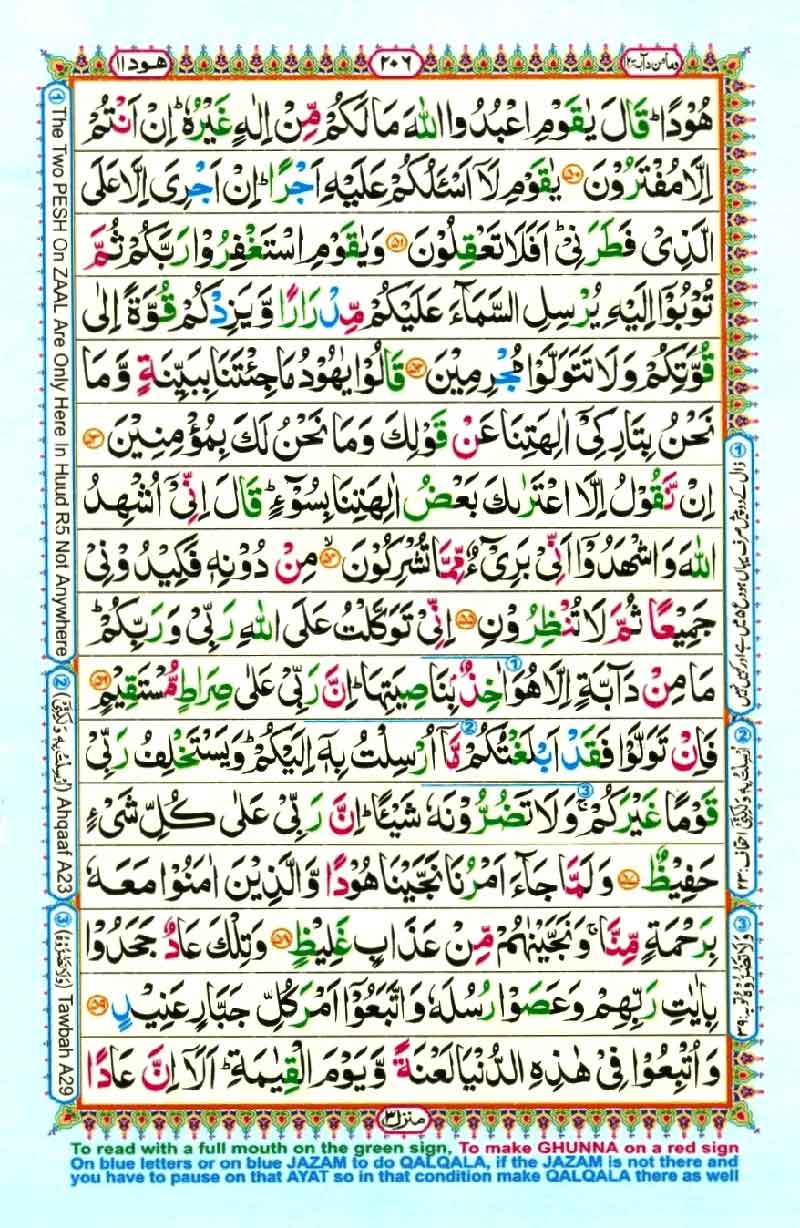 ومآمن دآبۃ ۱۲
۲۰۶
هود ۱۱
هُوْدًا ؕ قَالَ یٰقَوْمِ اعْبُدُوا اللّٰهَ مَا لَكُمْ مِّنْ اِلٰهٍ غَیْرُهٗ ؕ اِنْ اَنْتُمْ
اِلَّا مُفْتَرُوْنَ ۝۵۰ یٰقَوْمِ لَاۤ اَسْـَٔلُكُمْ عَلَیْهِ اَجْرًا ؕ اِنْ اَجْرِیَ اِلَّا عَلَی
الَّذِیْ فَطَرَنِیْ ؕ اَفَلَا تَعْقِلُوْنَ ۝۵۱ وَیٰقَوْمِ اسْتَغْفِرُوْا رَبَّكُمْ ثُمَّ
تُوْبُوْۤا اِلَیْهِ یُرْسِلِ السَّمَآءَ عَلَیْكُمْ مِّدْرَارًا وَّیَزِدْكُمْ قُوَّةً اِلٰی
قُوَّتِكُمْ وَلَا تَتَوَلَّوْا مُجْرِمِیْنَ ۝۵۲ قَالُوْا یٰهُوْدُ مَا جِئْتَنَا بِبَیِّنَةٍ وَّمَا
نَحْنُ بِتَارِكِیْۤ اٰلِهَتِنَا عَنْ قَوْلِكَ وَمَا نَحْنُ لَكَ بِمُؤْمِنِیْنَ ۝۵۳
اِنْ نَّقُوْلُ اِلَّا اعْتَرٰىكَ بَعْضُ اٰلِهَتِنَا بِسُوْٓءٍ ؕ قَالَ اِنِّیْۤ اُشْهِدُ
اللّٰهَ وَاشْهَدُوْۤا اَنِّیْ بَرِیْٓءٌ مِّمَّا تُشْرِكُوْنَ ۝۵۴ۙ مِنْ دُوْنِهٖ فَكِیْدُوْنِیْ
جَمِیْعًا ثُمَّ لَا تُنْظِرُوْنِ ۝۵۵ اِنِّیْ تَوَكَّلْتُ عَلَی اللّٰهِ رَبِّیْ وَرَبِّكُمْ ؕ
مَا مِنْ دَآبَّةٍ اِلَّا هُوَ اٰخِذٌۢ بِنَاصِیَتِهَا ؕ اِنَّ رَبِّیْ عَلٰی صِرَاطٍ مُّسْتَقِیْمٍ ۝۵۶
فَاِنْ تَوَلَّوْا فَقَدْ اَبْلَغْتُكُمْ مَّاۤ اُرْسِلْتُ بِهٖۤ اِلَیْكُمْ ؕ وَیَسْتَخْلِفُ رَبِّیْ
قَوْمًا غَیْرَكُمْ ۚ وَلَا تَضُرُّوْنَهٗ شَیْـًٔا ؕ اِنَّ رَبِّیْ عَلٰی كُلِّ شَیْءٍ
حَفِیْظٌ ۝۵۷ وَلَمَّا جَآءَ اَمْرُنَا نَجَّیْنَا هُوْدًا وَّالَّذِیْنَ اٰمَنُوْا مَعَهٗ
بِرَحْمَةٍ مِّنَّا ۚ وَنَجَّیْنٰهُمْ مِّنْ عَذَابٍ غَلِیْظٍ ۝۵۸ وَتِلْكَ عَادٌ ۙ جَحَدُوْا
بِاٰیٰتِ رَبِّهِمْ وَعَصَوْا رُسُلَهٗ وَاتَّبَعُوْۤا اَمْرَ كُلِّ جَبَّارٍ عَنِیْدٍ ۝۵۹
وَاُتْبِعُوْا فِیْ هٰذِهِ الدُّنْیَا لَعْنَةً وَّیَوْمَ الْقِیٰمَةِ ؕ اَلَاۤ اِنَّ عَادًا
منزل ۳
① The Two PESH On ZAAL Are Only Here In Huud R5 Not Anywhere
② (اُرْسِلْتُ بِهٖ وَلٰكِنِّیْ) Ahqaaf A23
③ (وَلَا تَضُرُّوْهُ) Tawbah A29
① ذال کے دو پیش صرف یہاں ہود ع ۵ میں ہے اور کہیں نہیں
② اُرْسِلْتُ بِهٖ وَلٰكِنِّیْ احقاف : ۲۳
③ وَلَا تَضُرُّوْهُ توبہ : ۳۹
To read with a full mouth on the green sign, To make GHUNNA on a red sign
On blue letters or on blue JAZAM to do QALQALA, if the JAZAM is not there and
you have to pause on that AYAT so in that condition make QALQALA there as well